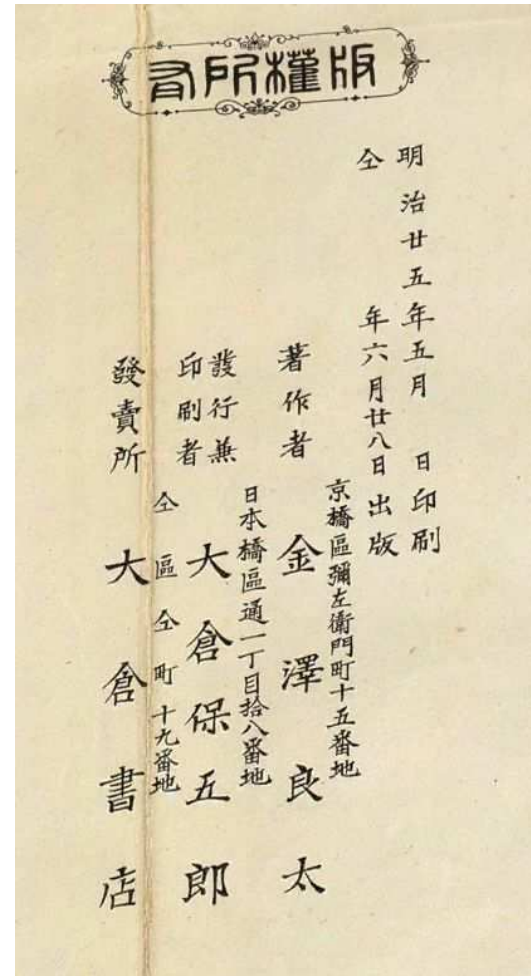 版權所有
明治廿五年五月　日印刷
仝　年六月廿八日出版
京橋區彌左衞門町十五番地
著作者　金澤良太
日本橋區通一丁目拾八番地
發行兼
印刷者　大倉保五郎
仝區仝町十九番地
發賣所　大倉書店